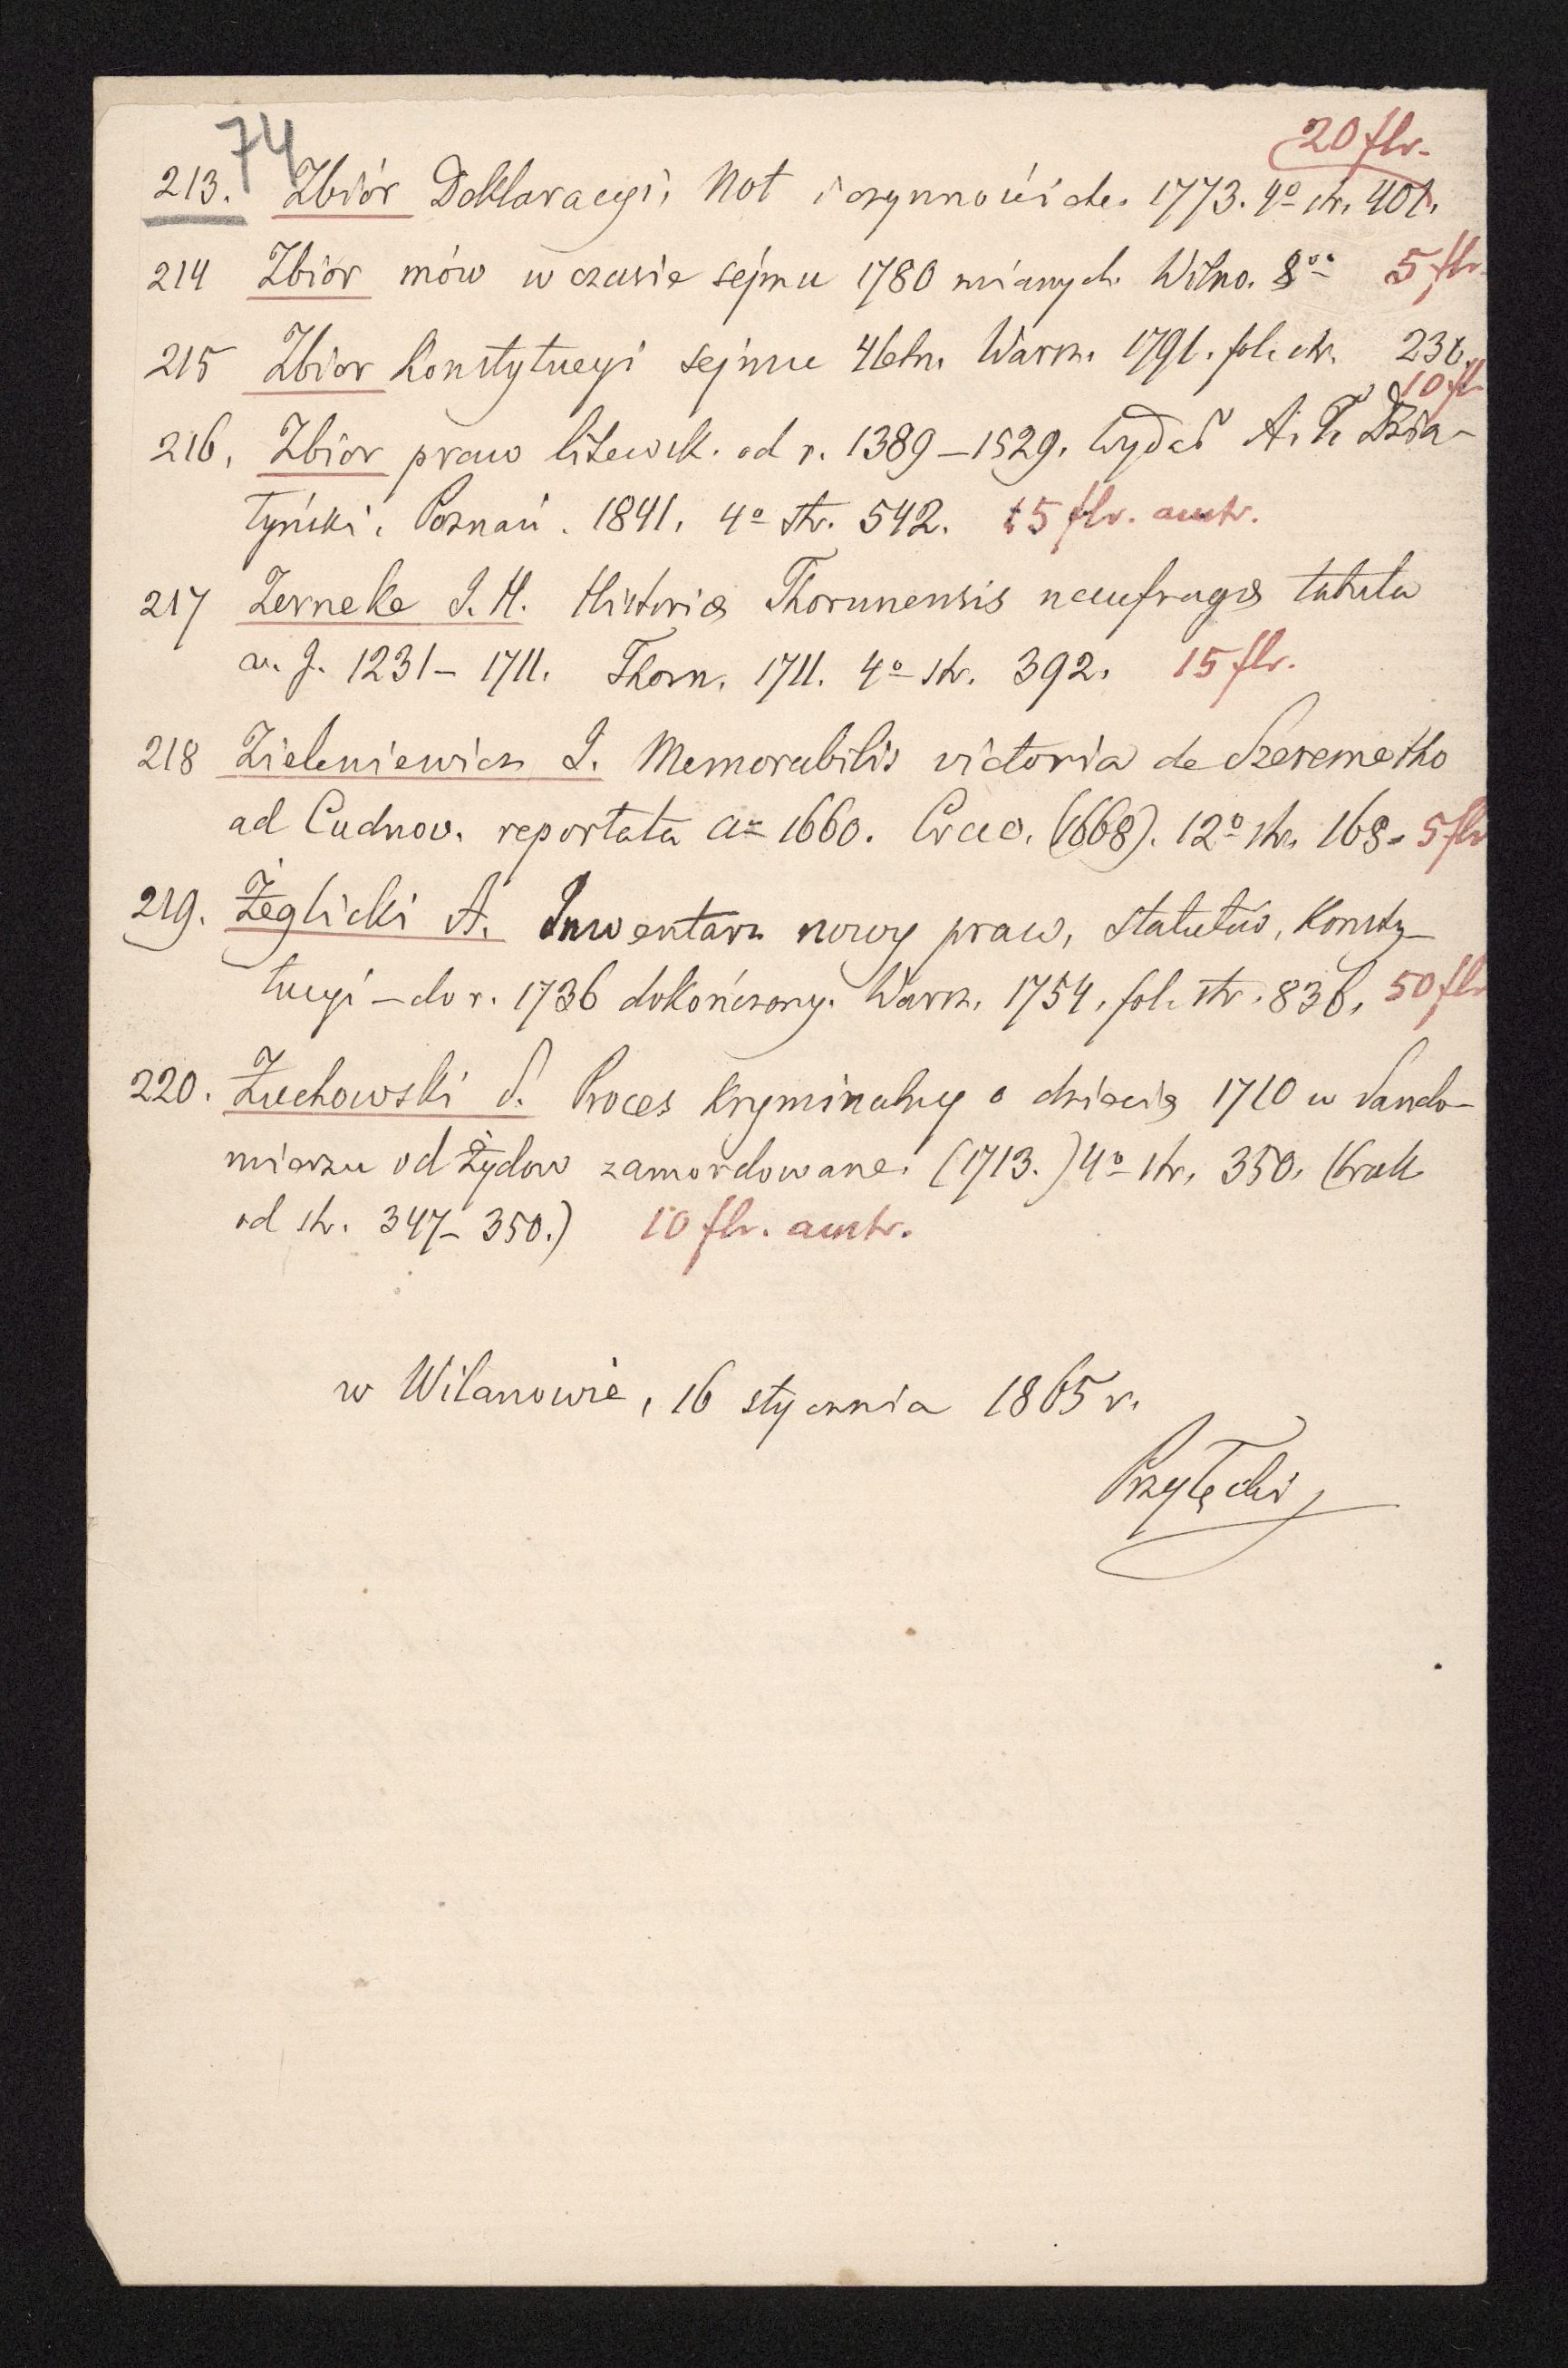 74
20 flr.
213. Zbiór Deklaracyi, Not i czynności etc. 1773. 4º str. 401.
214 Zbior mów w czasie sejmu 1780 mianych. Wilno. 8vo 5 flr.
215 Zbior Konstytucyi sejmu 4letn. Warsz. 1791. fol. str. 236.
10 fl
216. Zbior praw litewsk. od r. 1389–1529. wydał A. T. Dzia-
łyński. Poznań. 1841. 4º str. 542. 15 flr. austr.
217 Zerneke J. H. Historiæ Thorunensis naufragæ tabula
a. J. 1231– 1711. Thorn. 1711. 4º str. 392. 15 flr.
218 Zieleniewicz J. Memorabilis victoria de Szeremetho
ad Cudnov. reportata aº 1660. Crac. (1668). 12º str. 168. 5 flr
219. Żeglicki A. Inwentarz nowy praw, statutów, Konsty-
tucyi – do r. 1736 dokończony. Warsz. 1754. fol. str. 836. 50 flr
220. Żuchowski S. Proces kryminalny o dziecię 1710 w Sando-
mierzu od Żydow zamordowane. (1713.) 4º str. 350. (brak
od str. 347– 350.) 10 flr. austr.
w Wilanowie, 16 stycznia 1865 r.
Przyłęcki